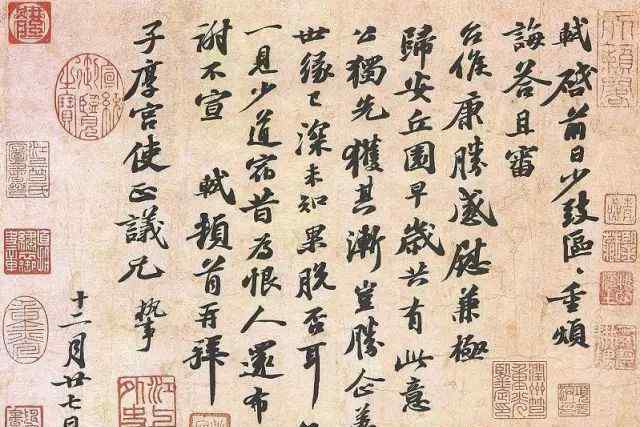 軾啓前日少致區〻重煩
誨荅且審
台候康勝感慰兼極
歸安丘園早歲共有此意
公獨先獲其漸豈勝企
世緣已深未知果脫否耳
一見少道宿昔為恨人還布
謝不宣 軾頓首再拜
子厚宮使正議兄 執事
十二月廿七日